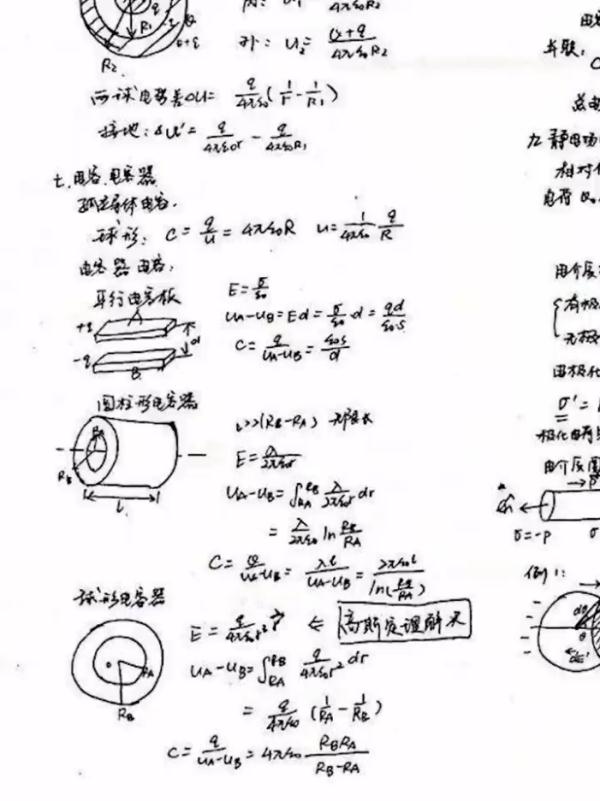 内: U₁ = 4πε₀R₂
外: U₂ = Q+q / 4πε₀R₂
q
R₁
Q+q
R₂
两球电势差ΔU = q/4πε₀ (1/r - 1/R₁)
接地: ΔU' = q/4πε₀r - q/4πε₀R₁
七.电容.电容器
孤立导体电容.
球形: C = q/u = 4πε₀R u = 1/4πε₀ q/R
电容器电容:
平行电容板
+q
-q
B
d
E = σ/ε₀
UA-UB = Ed = σ/ε₀ d = qd/ε₀s
C = q/UA-UB = ε₀s/d
圆柱形电容器
RA
RB
L
L>>(RB-RA) 无限长
E = λ/2πε₀r
UA-UB = ∫RA RB λ/2πε₀r dr
= λ/2πε₀ ln RB/RA
C = Q/UA-UB = λl/UA-UB = 2πε₀l/ln(RB/RA)
球形电容器
RA
RB
E = q/4πε₀r² r⃗ ⇐ 高斯定理解决
UA-UB = ∫RA RB q/4πε₀r² dr
= q/4πε₀ (1/RA - 1/RB)
C = q/UA-UB = 4πε₀ RBRA/RB-RA
并联:
九.静电场
相对
电介质
有极
无极
电极化
σ' =
极化电荷
电介质
σ=-P
σ
例1:
θ